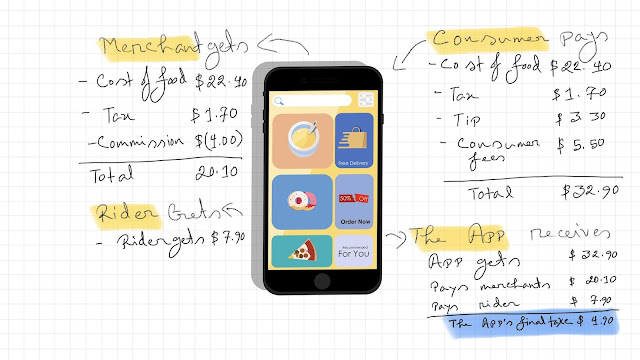 Merchant gets
- Cost of food $22.40
- Tax $1.70
- Commission $(4.00)
Total 20.10
Rider Gets
- Rider gets $7.90
Free Delivery
50% Off
Order Now
Recommended
For You
Consumer pays
- Cost of food $22.40
- Tax $1.70
- Tip $3.30
- Consumer fees $5.50
Total $32.90
The App receives
App gets $32.90
Pays merchants $20.10
Pays rider $7.90
The App's final take $4.90